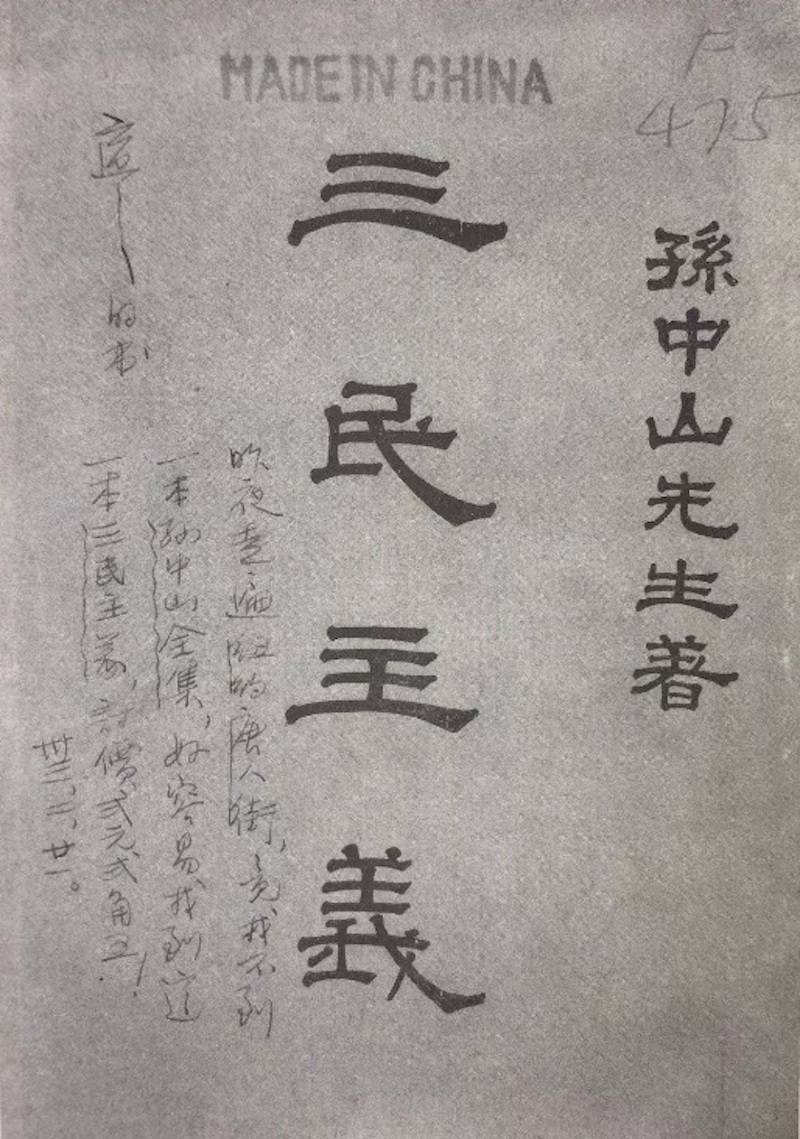 MADE IN CHINA
F
475
孫中山先生著
三民主義
昨夜走遍紐約唐人街，竟找不到
一本孙中山全集，好容易找到這
一本三民主義，討價弍元弍角五！
卅三、二、廿一。
的书